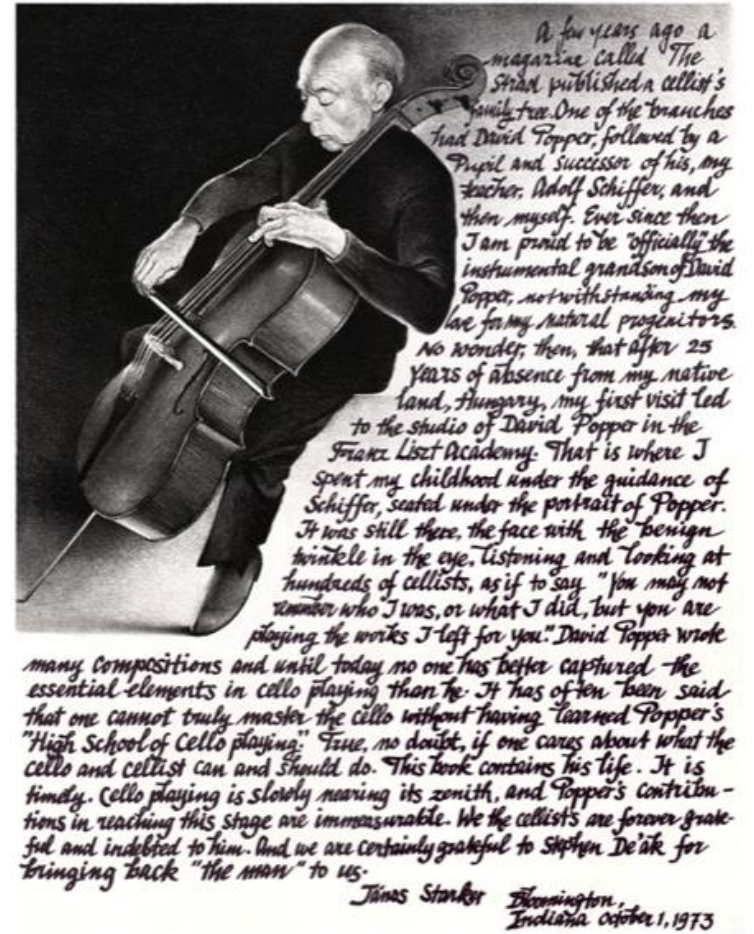 A few years ago a
magazine called The
Strad published a cellist's
family tree. One of the branches
had David Popper, followed by a
Pupil and successor of his, my
teacher, Adolf Schiffer, and
then myself. Ever since then
I am proud to be "officially" the
instrumental grandson of David
Popper, notwithstanding my
love for my natural progenitors.
No wonder, then, that after 25
years of absence from my native
land, Hungary, my first visit led
to the studio of David Popper in the
Franz Liszt Academy. That is where I
spent my childhood under the guidance of
Schiffer, seated under the portrait of Popper.
It was still there, the face with the benign
twinkle in the eye, listening and looking at
hundreds of cellists, as if to say "You may not
remember who I was, or what I did, but you are
playing the works I left for you." David Popper wrote
many compositions and until today no one has better captured the
essential elements in cello playing than he. It has often been said
that one cannot truly master the cello without having learned Popper's
"High School of Cello playing." True, no doubt, if one cares about what the
cello and cellist can and should do. This book contains his life. It is
timely. Cello playing is slowly nearing its zenith, and Popper's contribu-
tions in reaching this stage are immeasurable. We the cellists are forever grate-
ful and indebted to him. And we are certainly grateful to Stephen De'ak for
bringing back "the man" to us.
János Starker Bloomington,
Indiana October 1, 1973